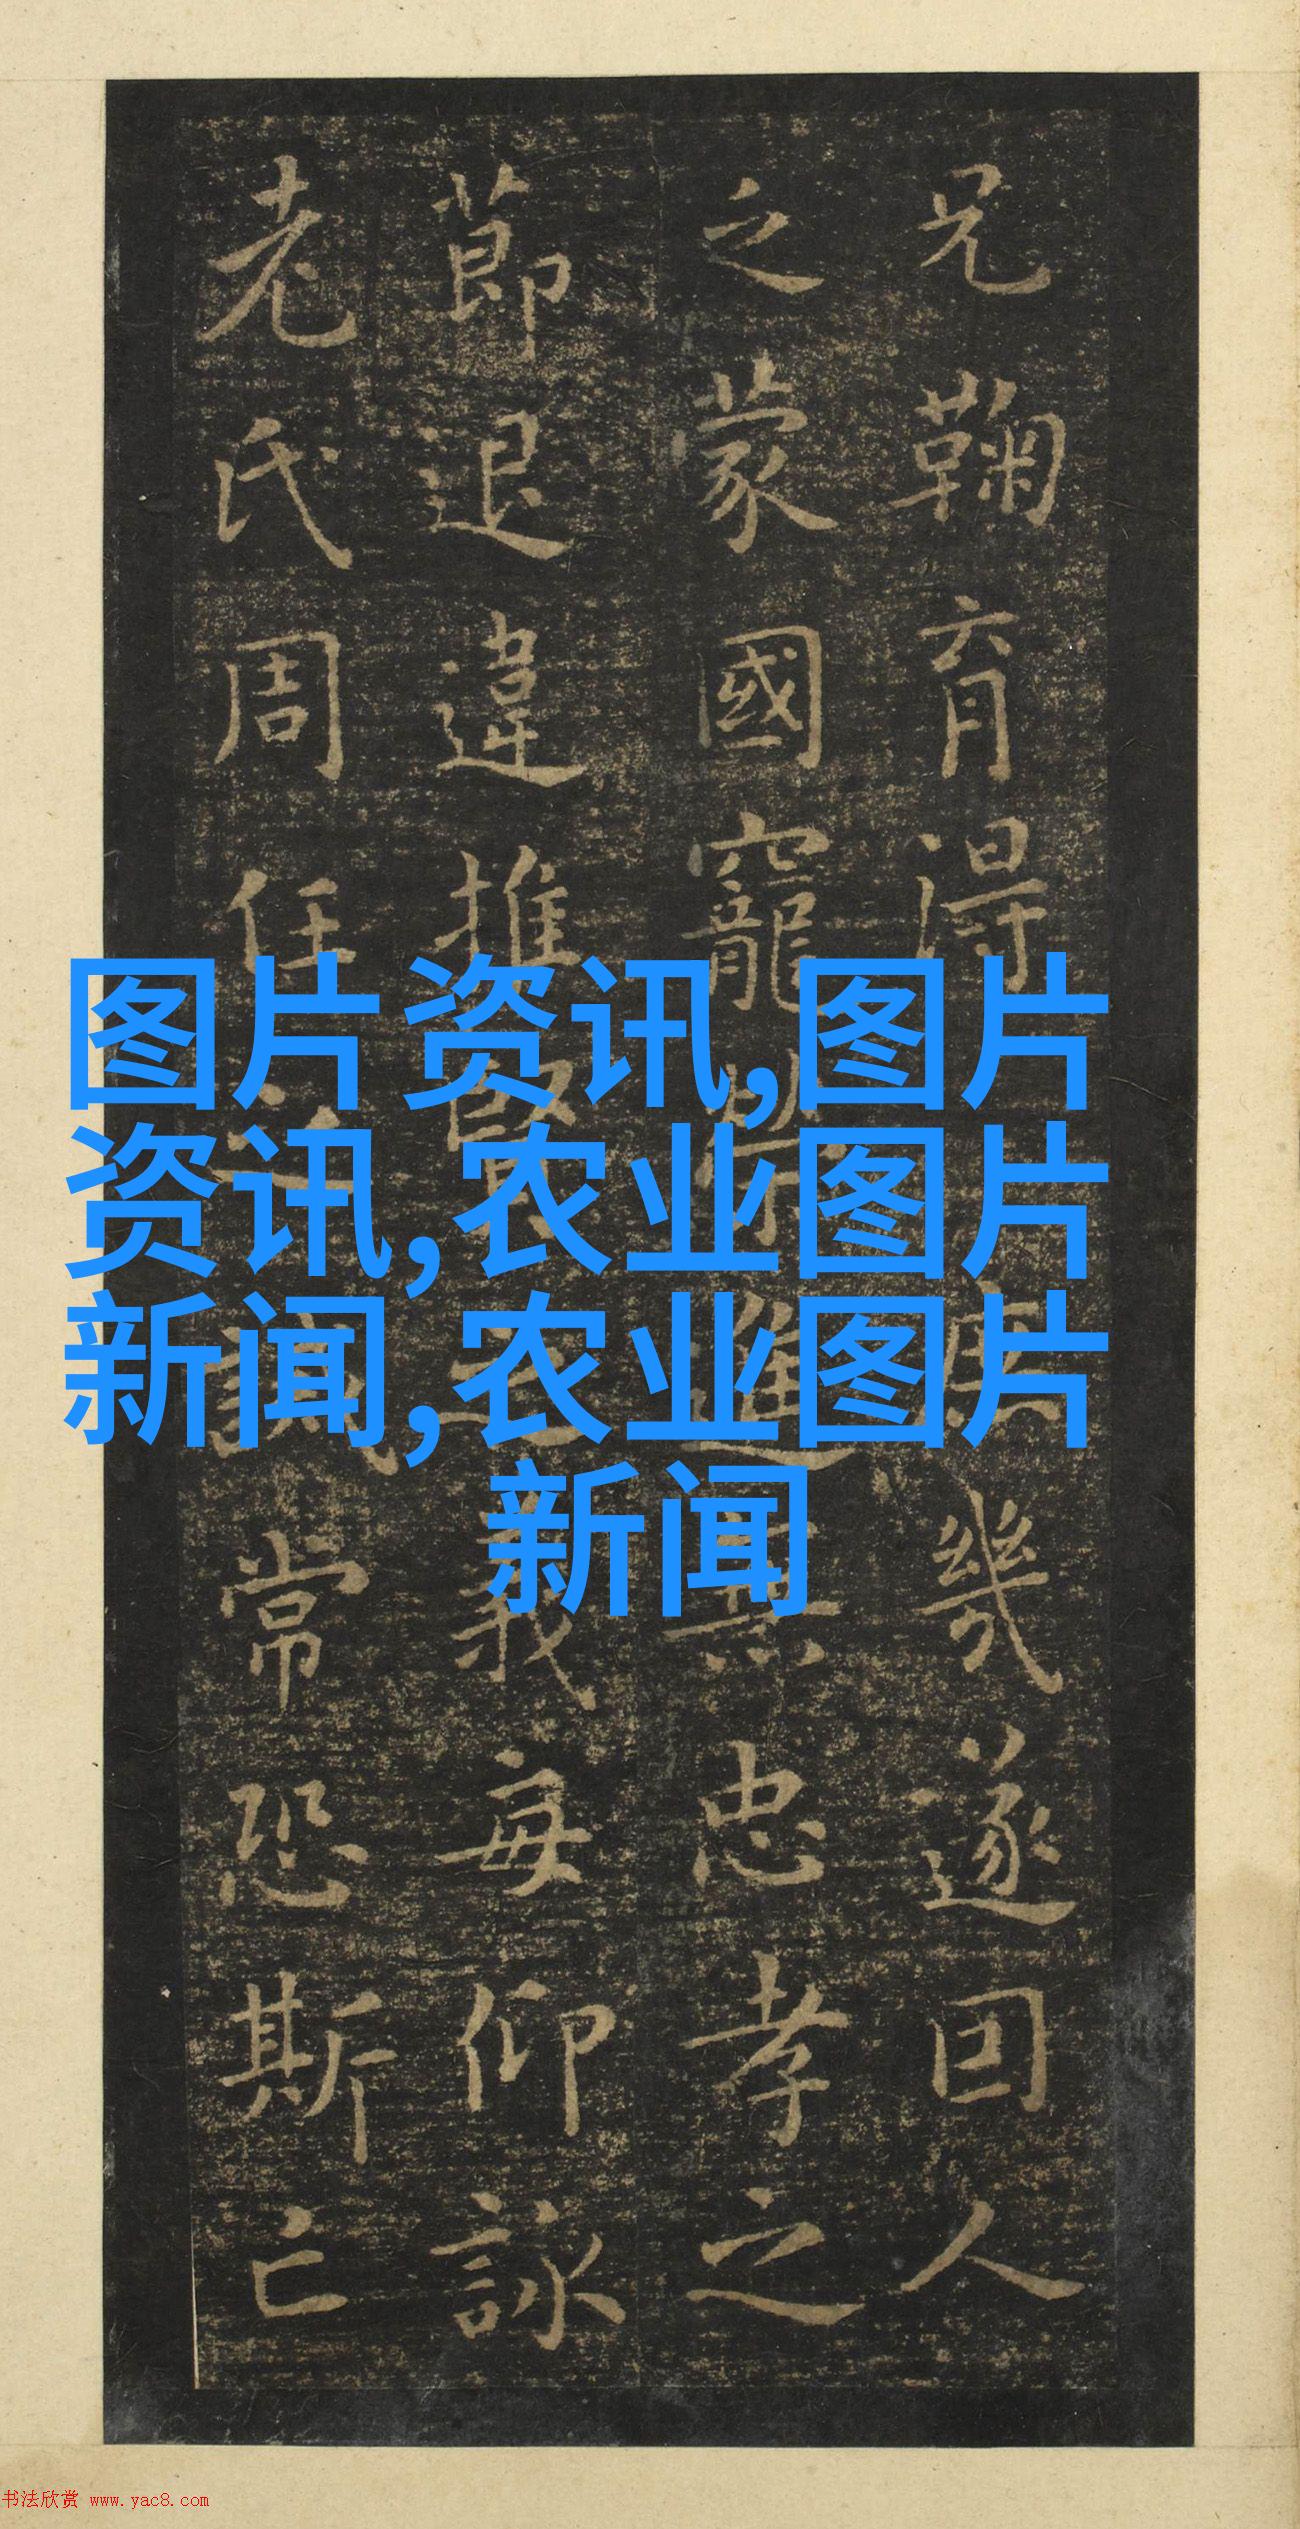 兄鞠育得庶幾遂因人
之蒙國寵榮進無忠孝之
節退違推賢之義每仰詠
老氏周任之誡常恐斯亡
图片资讯,图片
资讯,农业图片
新闻,农业图片
新闻
书法欣赏 www.yac8.com